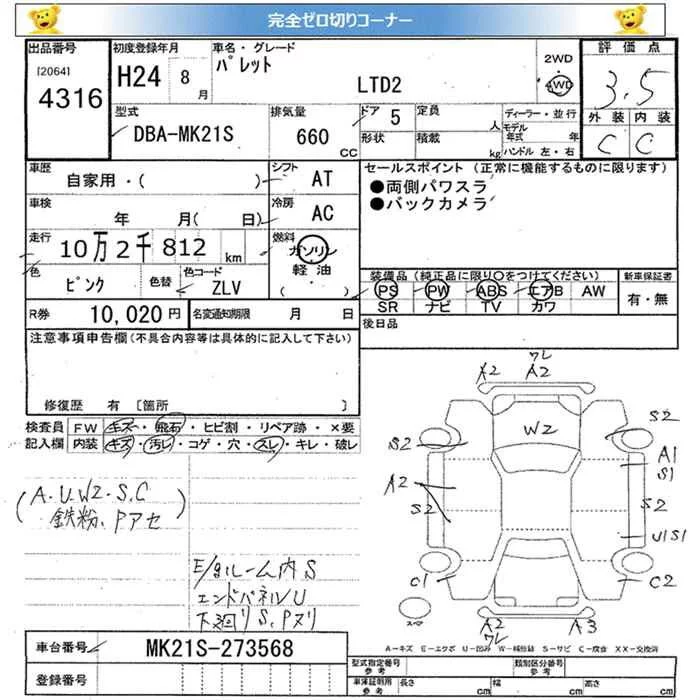 完全ゼロ切りコーナー
出品番号
[2064]
4316
初度登録年月
H24 8月
車名・グレード
パレット
LTD2
2WD
4WD
評価点
3.5
外装 内装
C C
型式
DBA-MK21S
排気量
660
CC
ドア 5
形状
定員
人
積載
kg
ディーラー・並行
モデル年式 年
ハンドル 左・右
車歴
自家用・( )
シフト
AT
車検
年 月( 日)
冷房
AC
走行
10万2千812 km
燃料
ガソリン
軽油
( )
色
ピンク
色替
色コード
ZLV
R券
10,020円
名変通知期限 月 日
セールスポイント(正常に機能するものに限ります)
●両側パワスラ
●バックカメラ
装備品(純正品に限り○をつけてください)
PS PW ABS エアB AW
SR ナビ TV カワ
新車保証書
有・無
後日品
注意事項申告欄(不具合内容等は具体的に記入して下さい)
修復歴 有 [箇所 ]
検査員
記入欄
FW キズ・飛石・ヒビ割・リペア跡・×要
内装 キズ・汚レ・コゲ・穴・スレ・キレ・破レ
(A.U.W2.S.C
鉄粉、Pアセ)
E/gルーム内S
エンドパネルU
下廻りS、Pヌリ
ワレ
A2 A2
W2
S2 S2
A1
S1
A2
S2 S2
U1S1
C1 C2
スペア
A2 A3
ワレ
A-キズ E-エクボ U-凹み W-補修跡 S-サビ C-腐食 XX-交換済
車台番号
MK21S-273568
登録番号
型式指定番号
参考
類別区分番号
参考
車庫証明用
参考
長さ cm 幅 cm 高さ cm